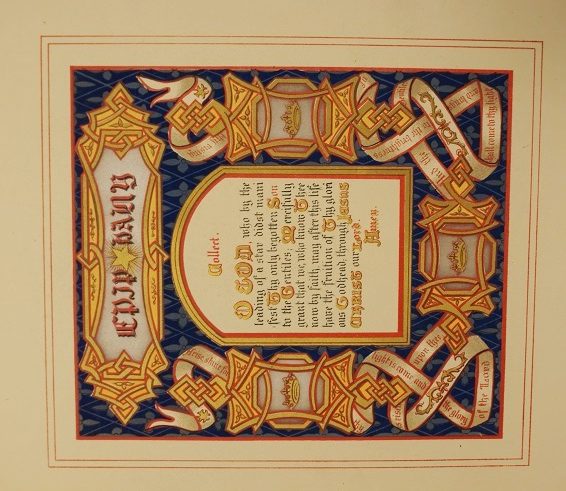 EPIPHANY
Collect.
O GOD, who by the
leading of a star didst mani
fest Thy only begotten Son
to the Gentiles; Mercifully
grant that we, who know Thee
now by faith, may after this life
have the fruition of Thy glori
ous Godhead, through JESUS
CHRIST our Lord.
Amen.
Arise, shine for
thy
light is come and
the glory
of the Lord
is risen
upon thee
shall come to thy light
and kings
to the brightness